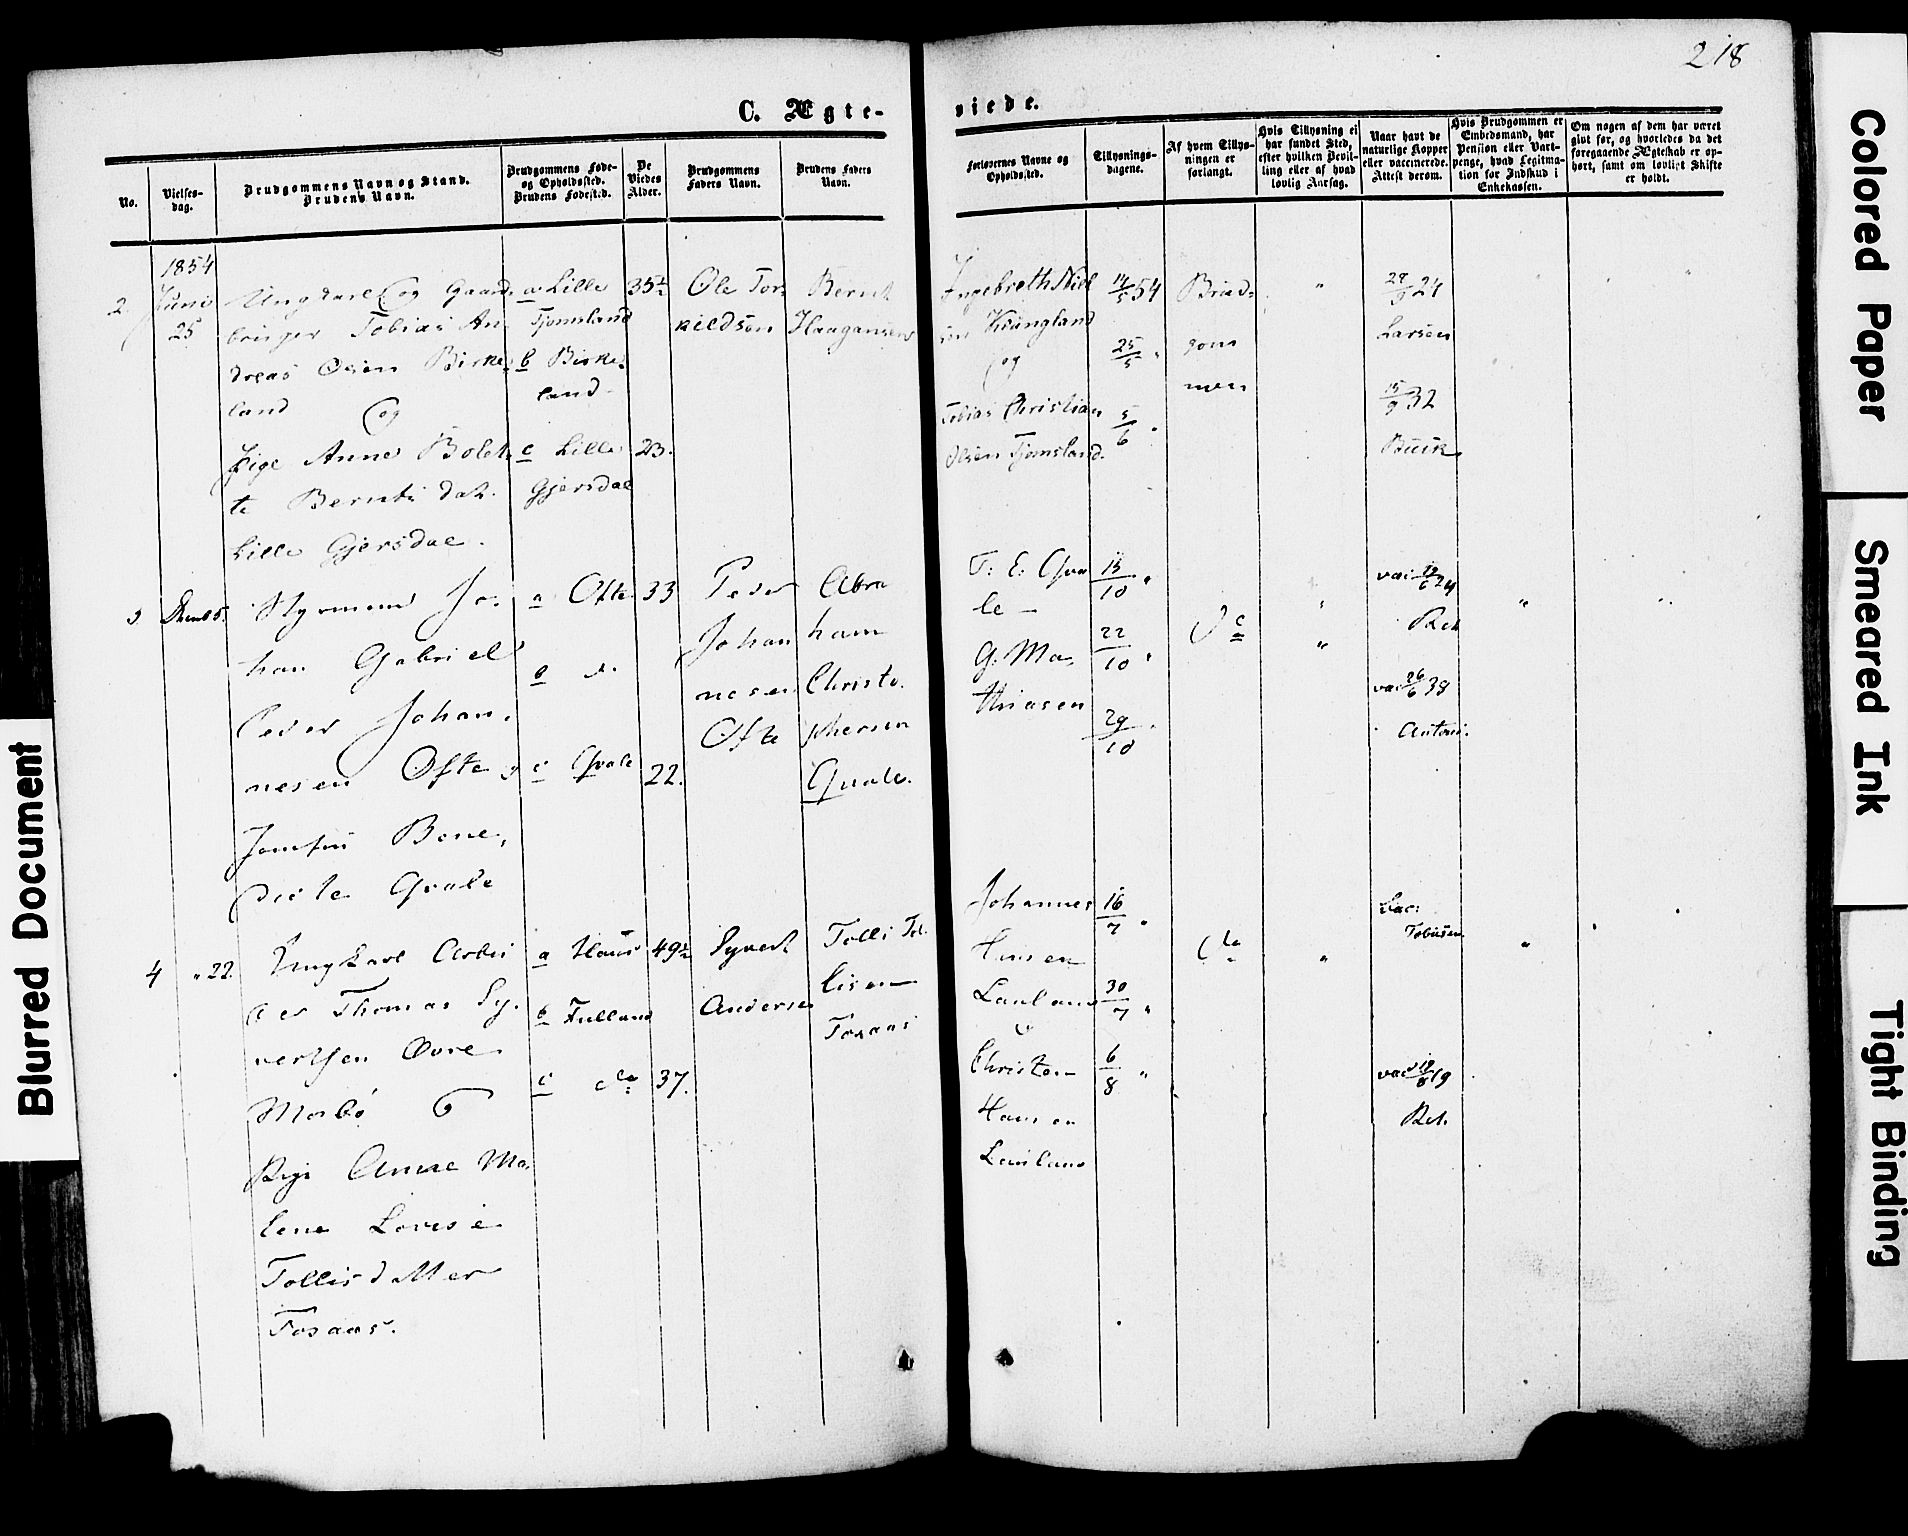 218
C. Ægte-
viede.
No.
Vielses-
dag.
Brudgommens Navn og Stand.
Brudens Navn.
Brudgommens Føde-
og Opholdssted.
Brudens Fødested.
De
Viedes
Alder.
Brudgommens
Faders Navn.
Brudens Faders
Navn.
Forlovernes Navne og
Opholdssted.
Tillysnings-
dagene.
Af hvem Tillys-
ningen er
forlangt.
Hvis Tillysning ei
har fundet Sted,
efter hvilken Bevil-
ling eller af hvad
lovlig Aarsag.
Naar havt de
naturlige Kopper
eller vaccinerede.
Attest derom.
Hvis Brudgommen er
Embedsmand, har
Pension eller Vart-
penge, hvad Legitima-
tion for Indskud i
Enkekassen.
Om nogen af dem har været
gift før, og hvorledes da det
foregaaende Ægteskab er op-
hørt, samt om lovligt Skifte
er holdt.
1854
2.
Juni
25
Ungkarl og Gaard-
bruger Tobias An-
dreas Olsen Birke-
land og
Pige Anne Bolet-
te Bernts dat.
Lille Gjersdal.
a Lille
Tjomsland
b Birke-
land
c Lille
Gjersdal
35½
23.
Ole Tor-
kildsen
Bernt
Haagansen
Ingebreth Niel
sen Kvingland
og
Tobias Christian
Olsen Tjomsland.
14/5 54
25/5 "
5/6 "
Brud-
gom
men
"
28/9 24
Larsen
15/9 32
Buck
3.
5.
Styrmand Jo-
han Gabriel
Peder Johan-
nesen Ofte og
Bene-
dicte Qvale
a Ofte
b d.
c Qvale
33
22.
Peder
Johan
nesen
Ofte
Abra
ham
Christo-
phersen
Qvale.
T: E: Qva
le —
G: Ma-
thiasen
15/10 "
22/10 "
29/10 "
"
"
vac 24
vac 26/6 38
"
4
" 22.
Ungkarl Arbei
der Thomas Sy-
vertsen Øvre
Mosbø
Pige Anne Ma-
lene Lovise
Tollisdatter
Fosaas.
a
b
c do
49½
37.
Syvert
Andersen
Tolli Tol-
lisen
Fosaas
Johannes
Hansen
Lauland
Christen
Hansen
Lauland
16/7 "
30/7 "
6/8 "
do
"
vac:
Tobiasen
vac 19
"
Blurred Document
Colored Paper
Smeared Ink
Tight Binding